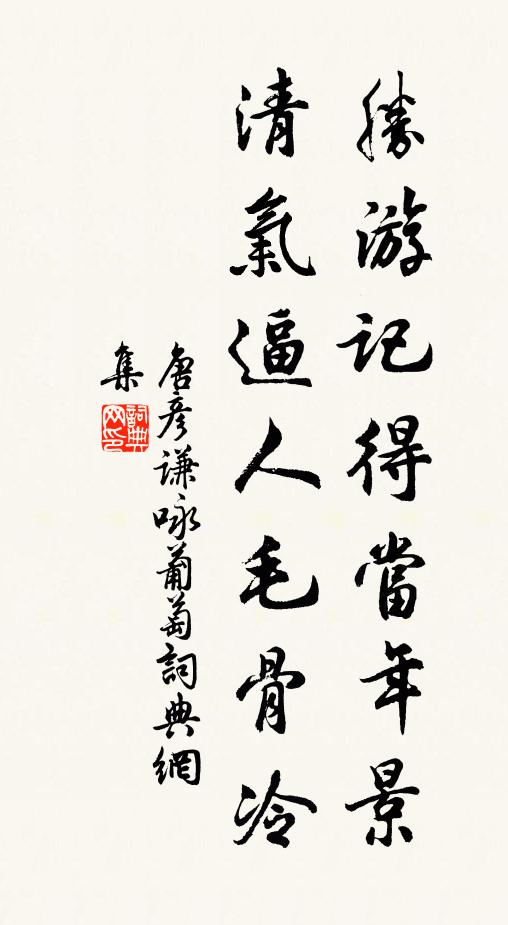 勝游記得當年景
清氣逼人毛骨冷
唐彦謙咏葡萄詞典網
集
詞典
网印